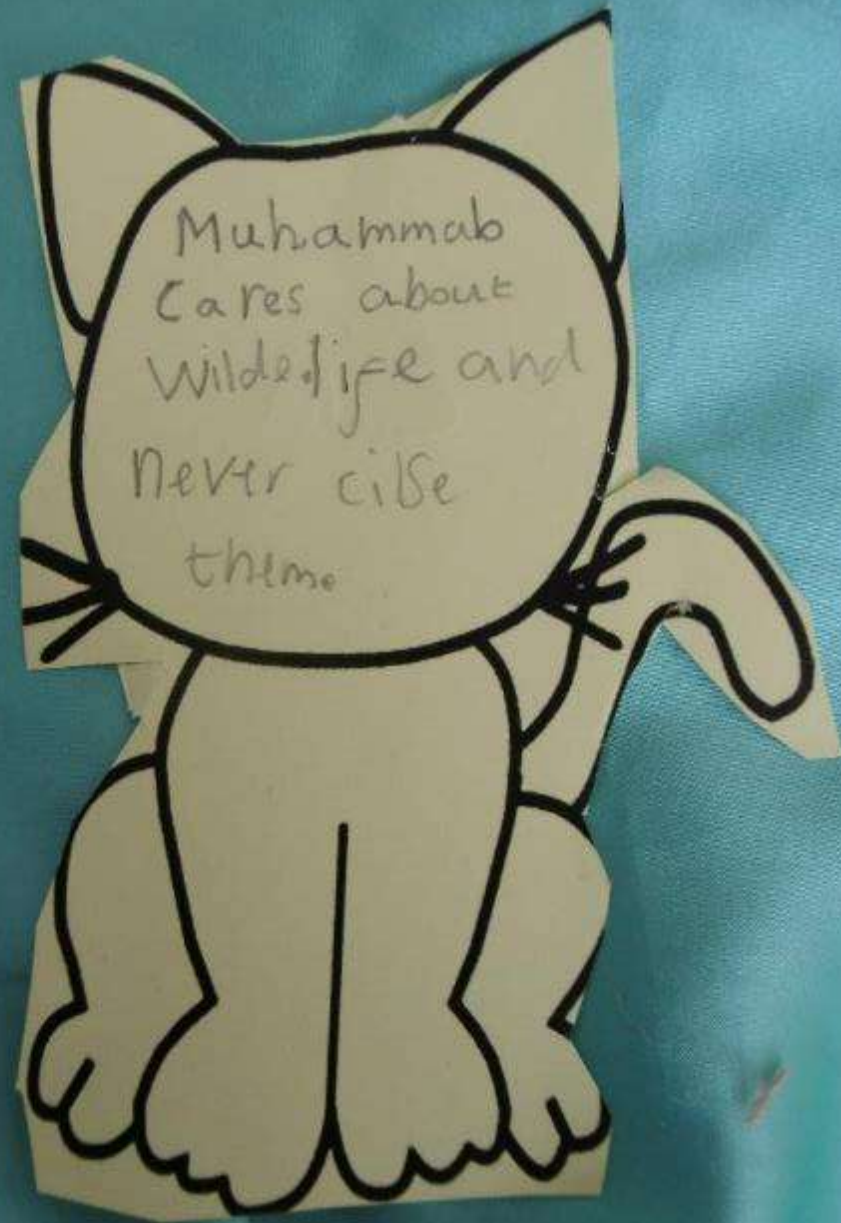 Muhammab
Cares about
Wilde.life and
never cilse
them.